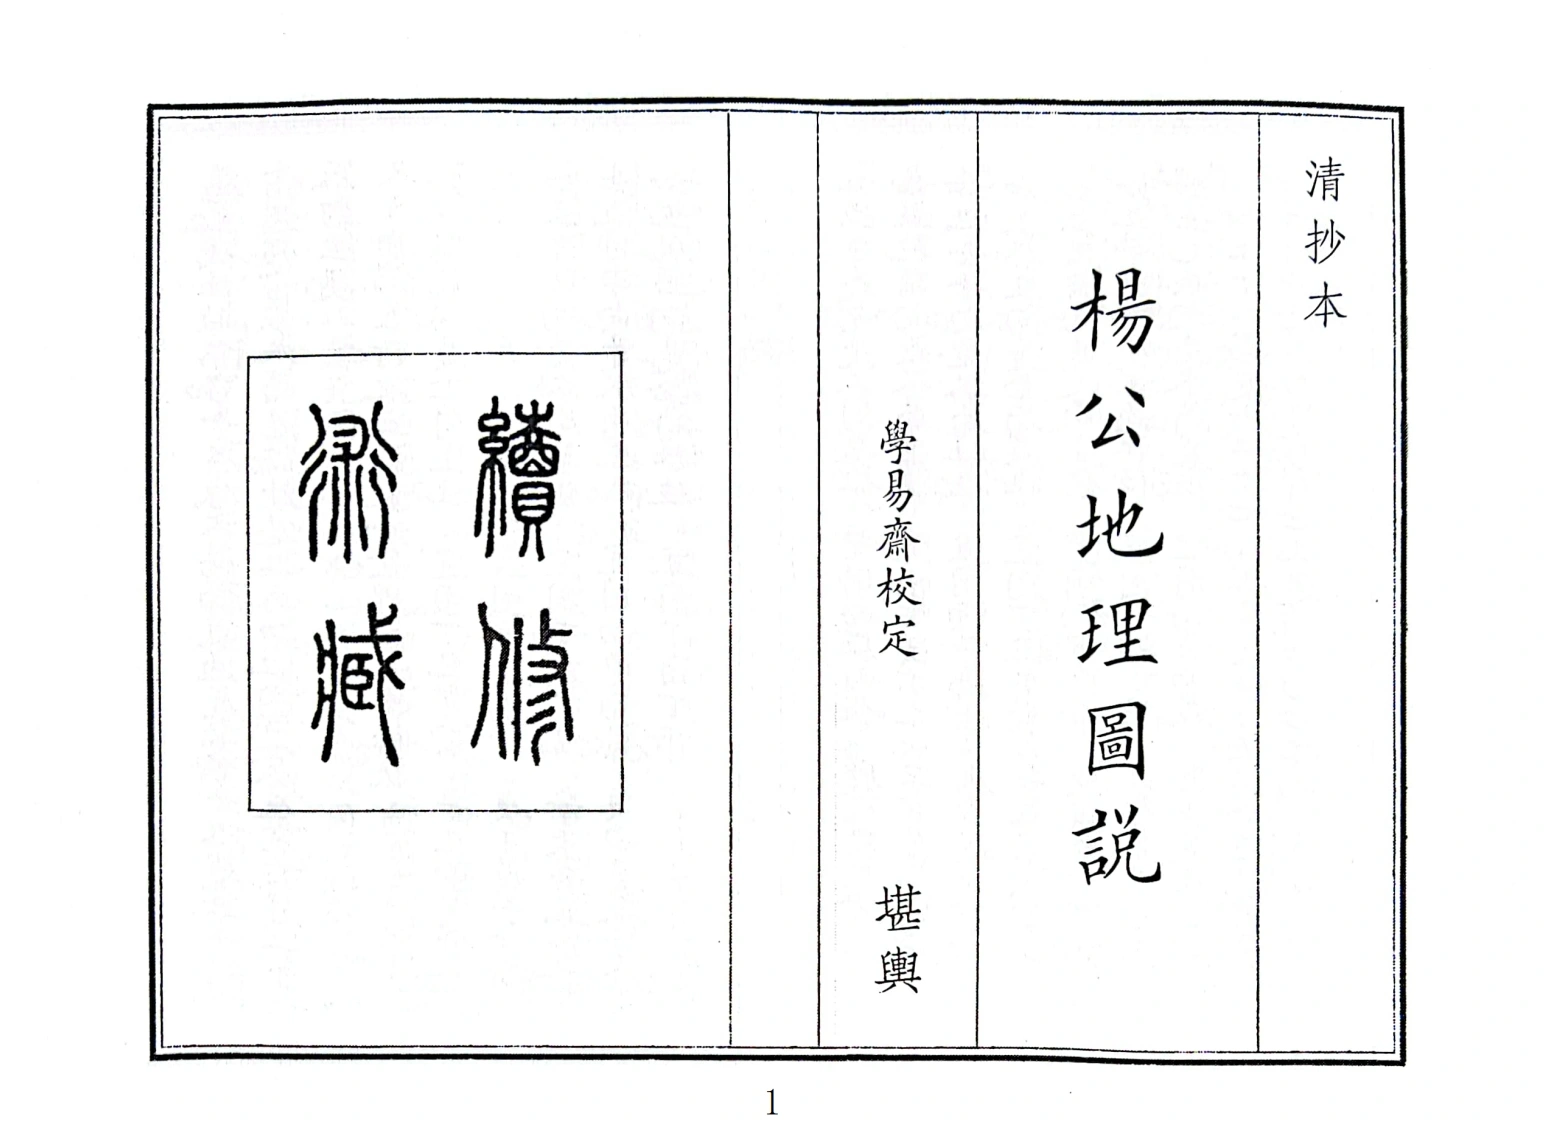 清抄本
楊公地理圖説
學易齋校定
堪輿
續修
術藏
1